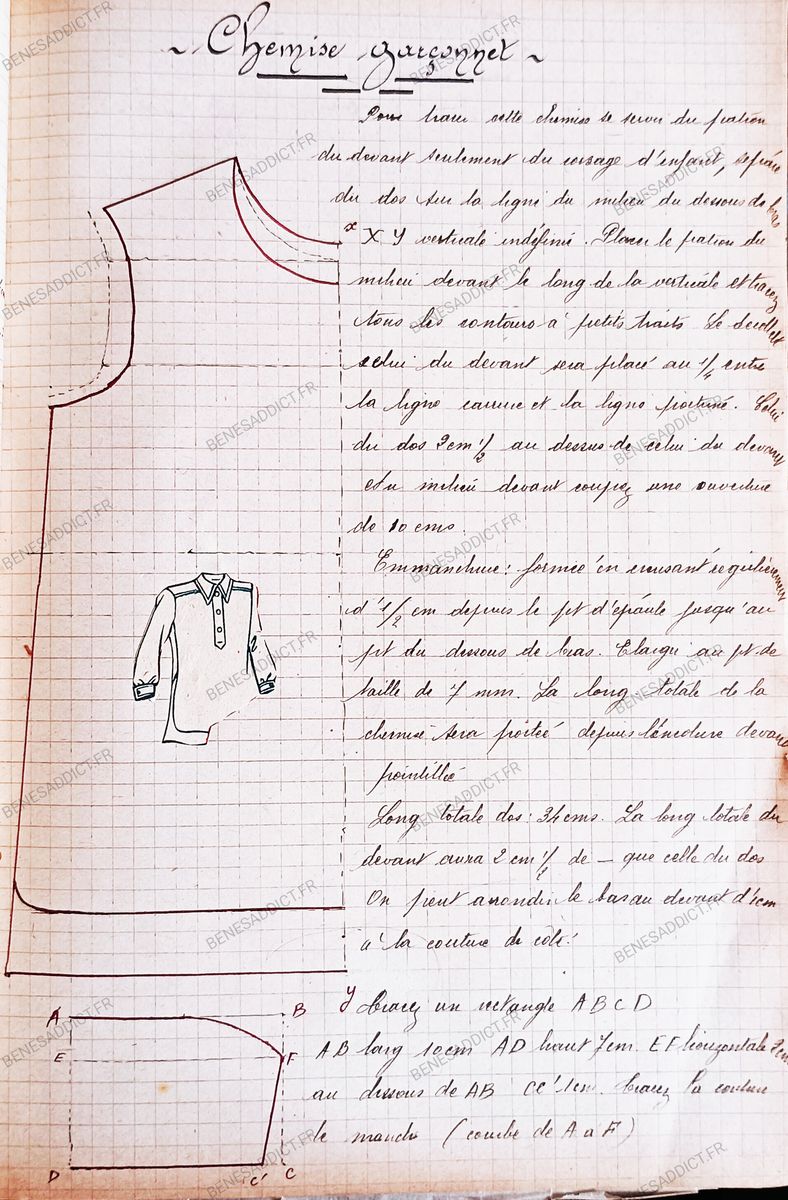 ~ Chemise garçonnet ~
Pour tracer cette chemise se servir du patron
du devant seulement du corsage d'enfant, séparé
du dos sur la ligne du milieu du dessous de bras
x X Y verticale indéfinie. Placer le patron du
milieu devant le long de la verticale et tracez
tous les contours à petits traits. Le décolleté
celui du devant sera placé au 1/4 entre
la ligne carrure et la ligne poitrine. Celui
du dos 2cm 1/2 au dessus de celui du devant
Au milieu devant coupez une ouverture
de 10 cms.
Emmanchure: formée en creusant régulièrement
d'1/2 cm depuis le pt d'épaule jusqu'au
pt du dessous de bras. Elargir au pt de
taille de 7 mm. La long totale de la
chemise sera portée depuis l'encolure devant
pointillée
Long totale dos: 34 cms. La long totale du
devant aura 2 cm 1/2 de — que celle du dos
On peut arrondir le bas au devant d'1cm
à la couture de côté.
Y tracez un rectangle A B C D
A B larg 10cm AD haut 7cm. E F horizontale 2cm
au dessous de AB CC' 1cm. tracez la couture
de manche (courbe de A a F)
A
B
E
F
D
C'
C
BENESADDICT.FR